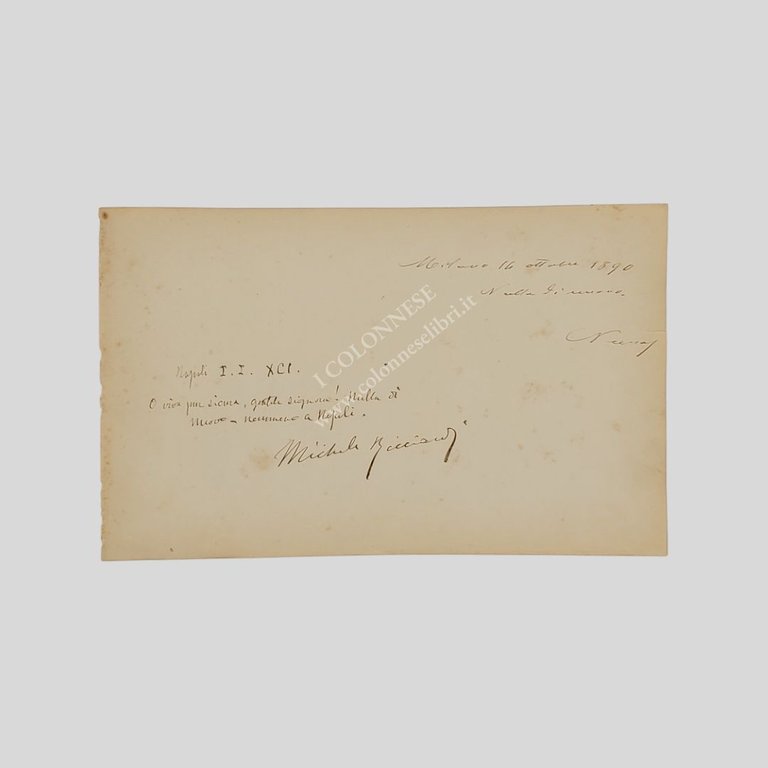 Milano 14 ottobre 1890
Nulla di nuovo.
Napoli I. I. XCI.
O viva pur sicura, gentile signora! Nulla di
nuovo - nemmeno a Napoli.
Michele Ricciardi
I COLONNESE
www.colonneselibri.it